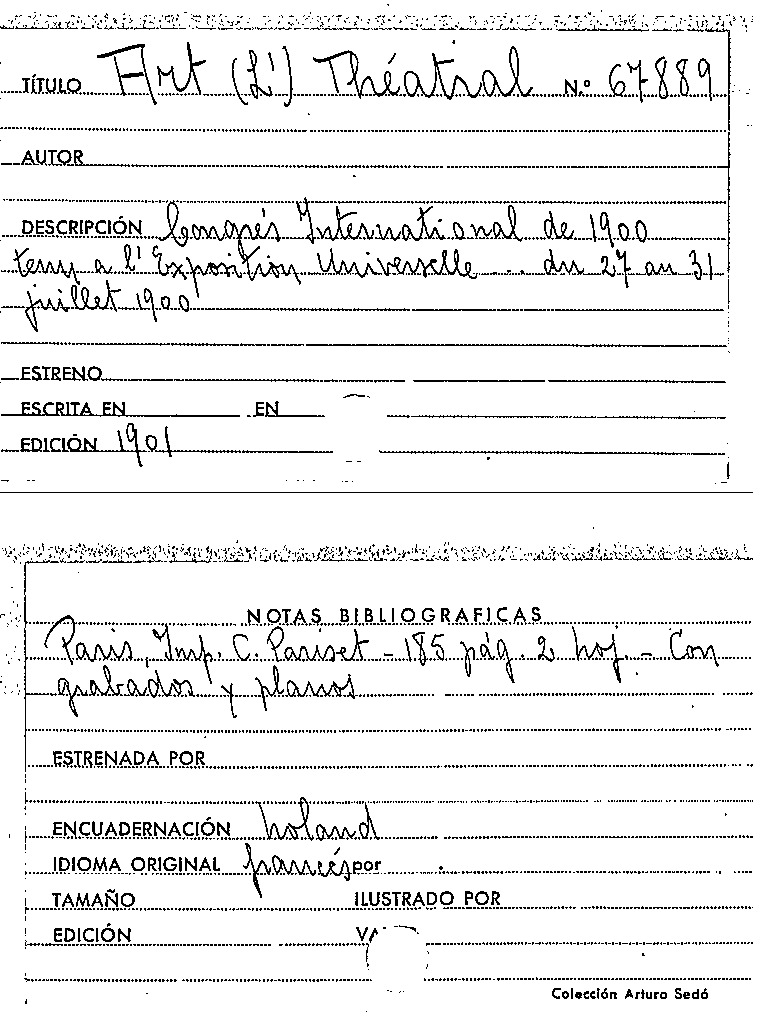 TÍTULO Art (L') Théatral N.º 67889
AUTOR
DESCRIPCIÓN Congrés International de 1900
tenu a l'Exposition Universelle .. du 27 au 31
juillet 1900
ESTRENO
ESCRITA EN EN
EDICIÓN 1901
NOTAS BIBLIOGRAFICAS
Paris, Imp. C. Pariset - 185 pág. 2 hoj. - Con
grabados y planos
ESTRENADA POR
ENCUADERNACIÓN holand
IDIOMA ORIGINAL francés por
TAMAÑO ILUSTRADO POR
EDICIÓN
Colección Arturo Sedó